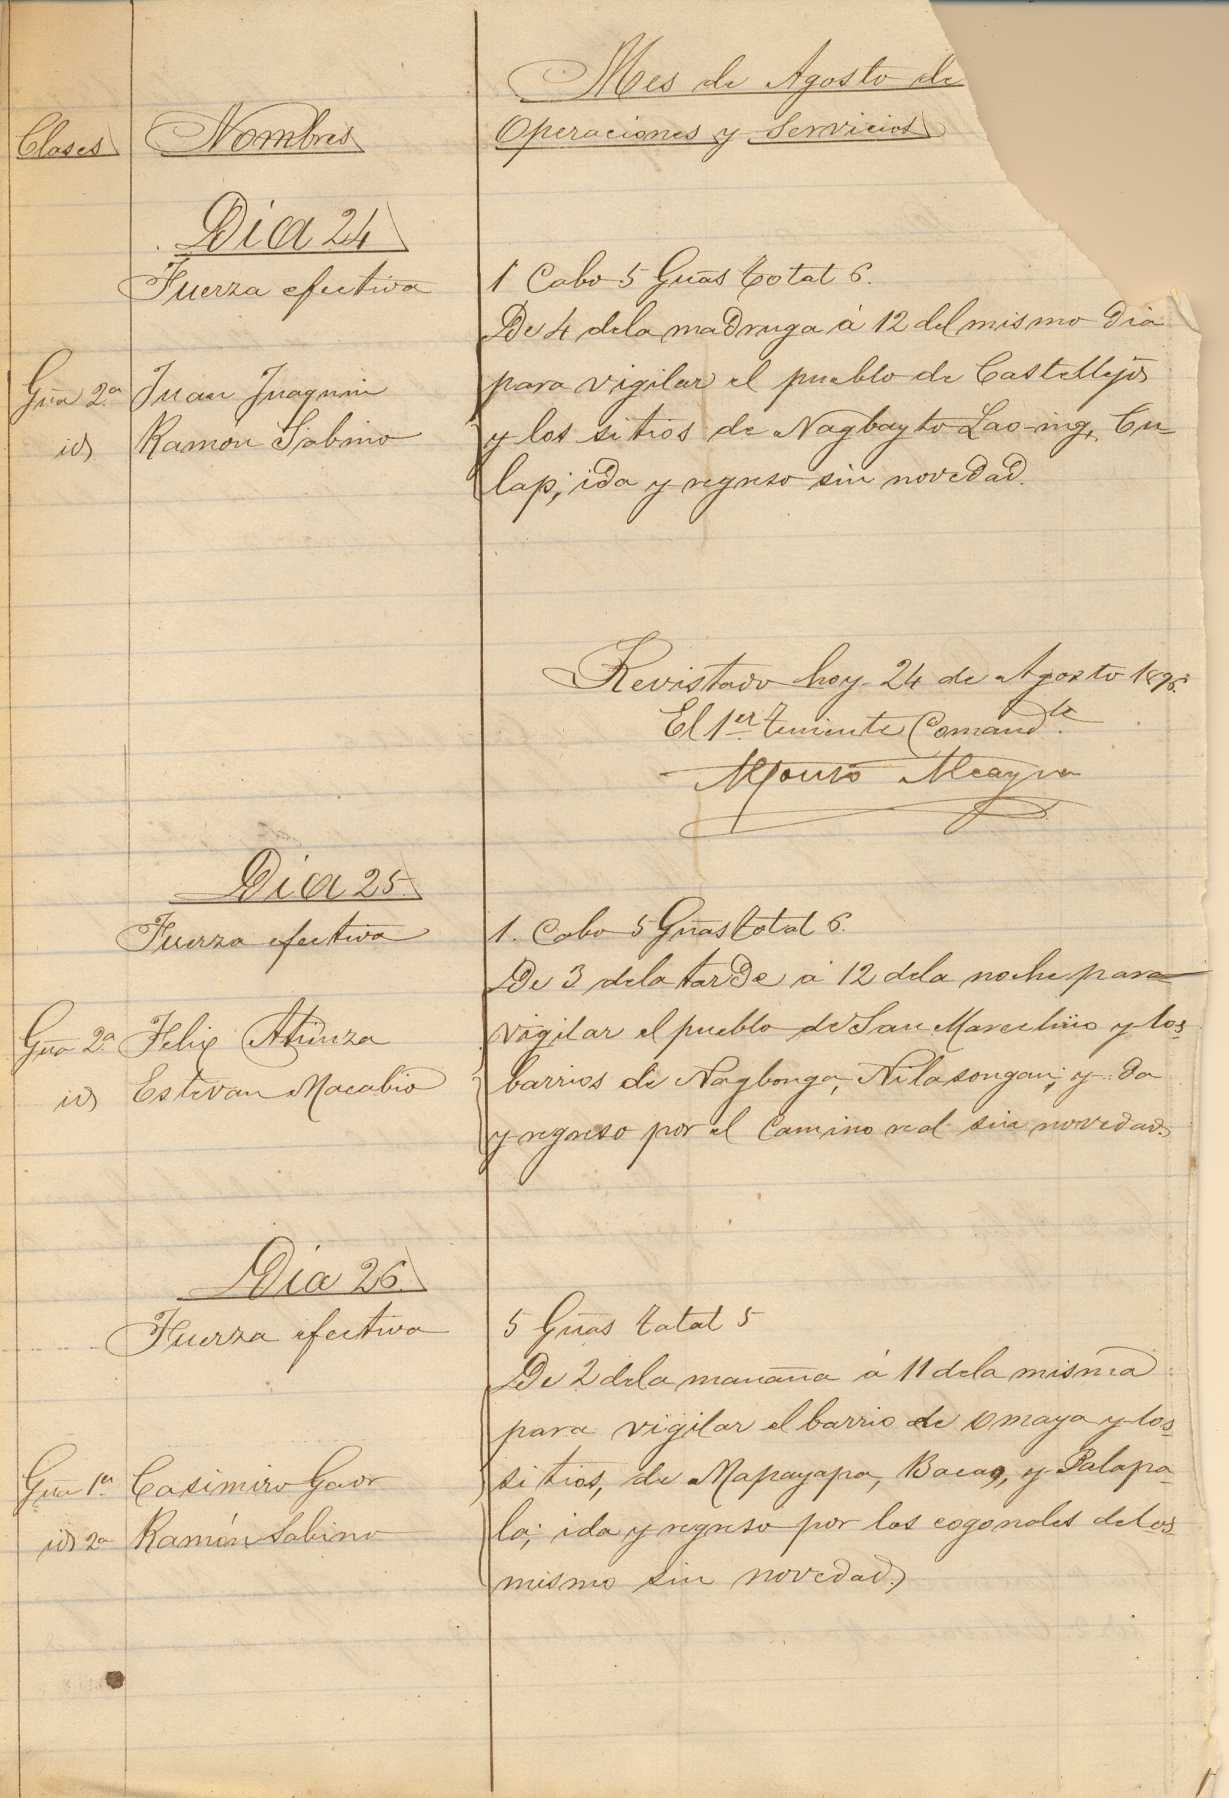 Mes de Agosto de
Clases Nombres Operaciones y Servicios
Dia 24
Fuerza efectiva 1 Cabo 5 Guas total 6.
De 4 dela madruga á 12 del mismo dia
Gua 2.a Juan Juaquin para vigilar el pueblo de Castillejos
id Ramón Sabino y los sitios de Nagbayto Lao-ing, Cu-
lap; ida y regreso sin novedad.
Revistado hoy 24 de Agosto 1896
El 1er teniente Comandte
Dia 25
Fuerza efectiva 1. Cabo 5 Guas total 6.
De 3 dela tarde á 12 dela noche para
Gua 2.a Felix Atienza vigilar el pueblo de San Marcelino y los
id Estevan Macabio barrios de Nagbonga, Nilasongan; y da
y regreso por el Camino real sin novedad.
Dia 26.
Fuerza efectiva 5 Guas total 5
De 2 dela manaña á 11 dela misma
para vigilar el barrio de Omaya y los
Gua 1.a Casimiro Gavor sitios, de Mapayapa, Bacao, y Palapa-
id 2a Ramón Sabino la; ida y regreso por los cogonales delos
mismo sin novedad.